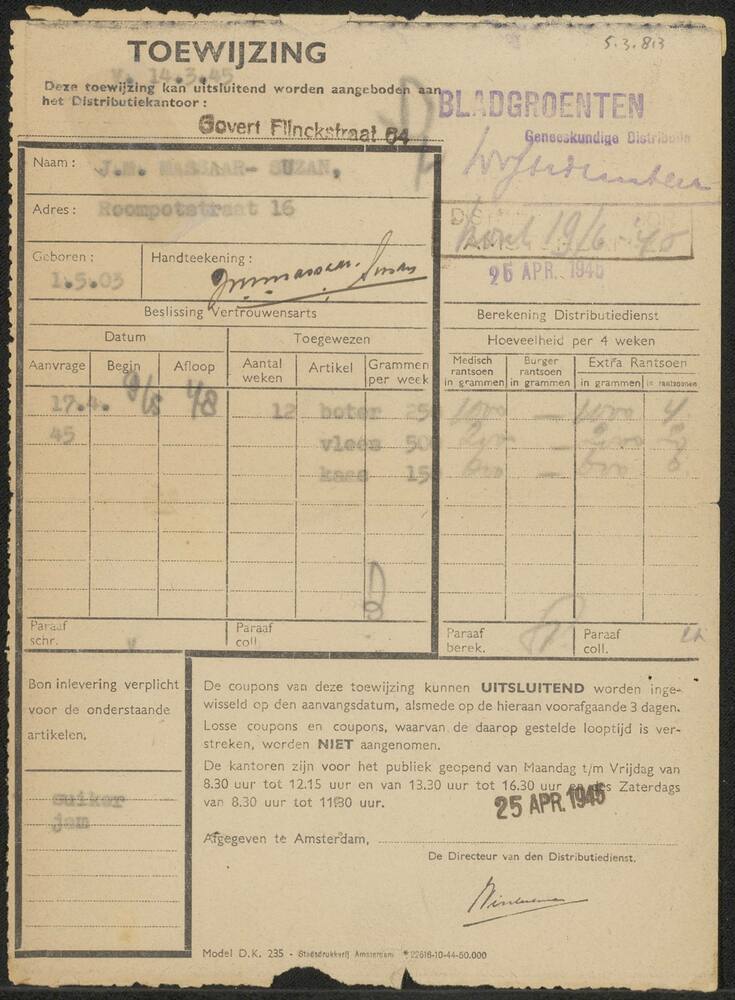 5.3.813
TOEWIJZING
V. 14.3.45
Deze toewijzing kan uitsluitend worden aangeboden aan
het Distributiekantoor :
Govert Flinckstraat 64
BLADGROENTEN
Geneeskundige Distributie
Naam : J.M. MASSAAR- SUZAN,
Adres : Roompotstraat 16
26 APR. 1945
Geboren : 1.5.03
Handteekening :
Beslissing Vertrouwensarts
Berekening Distributiedienst
Datum
Toegewezen
Hoeveelheid per 4 weken
Aanvrage Begin Afloop Aantal weken Artikel Grammen per week
Medisch rantsoen in grammen Burger rantsoen in grammen Extra Rantsoen in grammen in rantsoenen
17.4. 9/5 4/8 12 boter 250 1000 — 1000 4
45 vlees 500
kaas 15
Paraaf schr. V
Paraaf coll.
Paraaf berek.
Paraaf coll.
Bon inlevering verplicht
voor de onderstaande
artikelen.
suiker
jam
De coupons van deze toewijzing kunnen UITSLUITEND worden inge-
wisseld op den aanvangsdatum, alsmede op de hieraan voorafgaande 3 dagen.
Losse coupons en coupons, waarvan de daarop gestelde looptijd is ver-
streken, worden NIET aangenomen.
De kantoren zijn voor het publiek geopend van Maandag t/m Vrijdag van
8.30 uur tot 12.15 uur en van 13.30 uur tot 16.30 uur en des Zaterdags
van 8.30 uur tot 11.30 uur.
25 APR. 1945
Afgegeven te Amsterdam,
De Directeur van den Distributiedienst,
Model D.K. 235 - Stadsdrukkerij Amsterdam * 22616-10-44-50.000